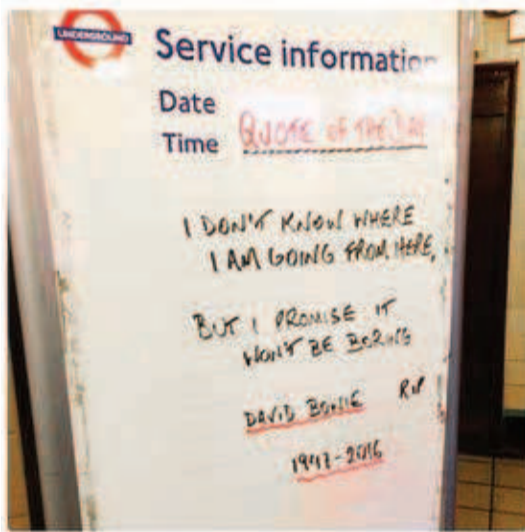 UNDERGROUND
Service information
Date
Time QUOTE OF THE DAY
I DON'T KNOW WHERE
I AM GOING FROM HERE,
BUT I PROMISE IT
WON'T BE BORING
DAVID BOWIE RIP
1947-2016